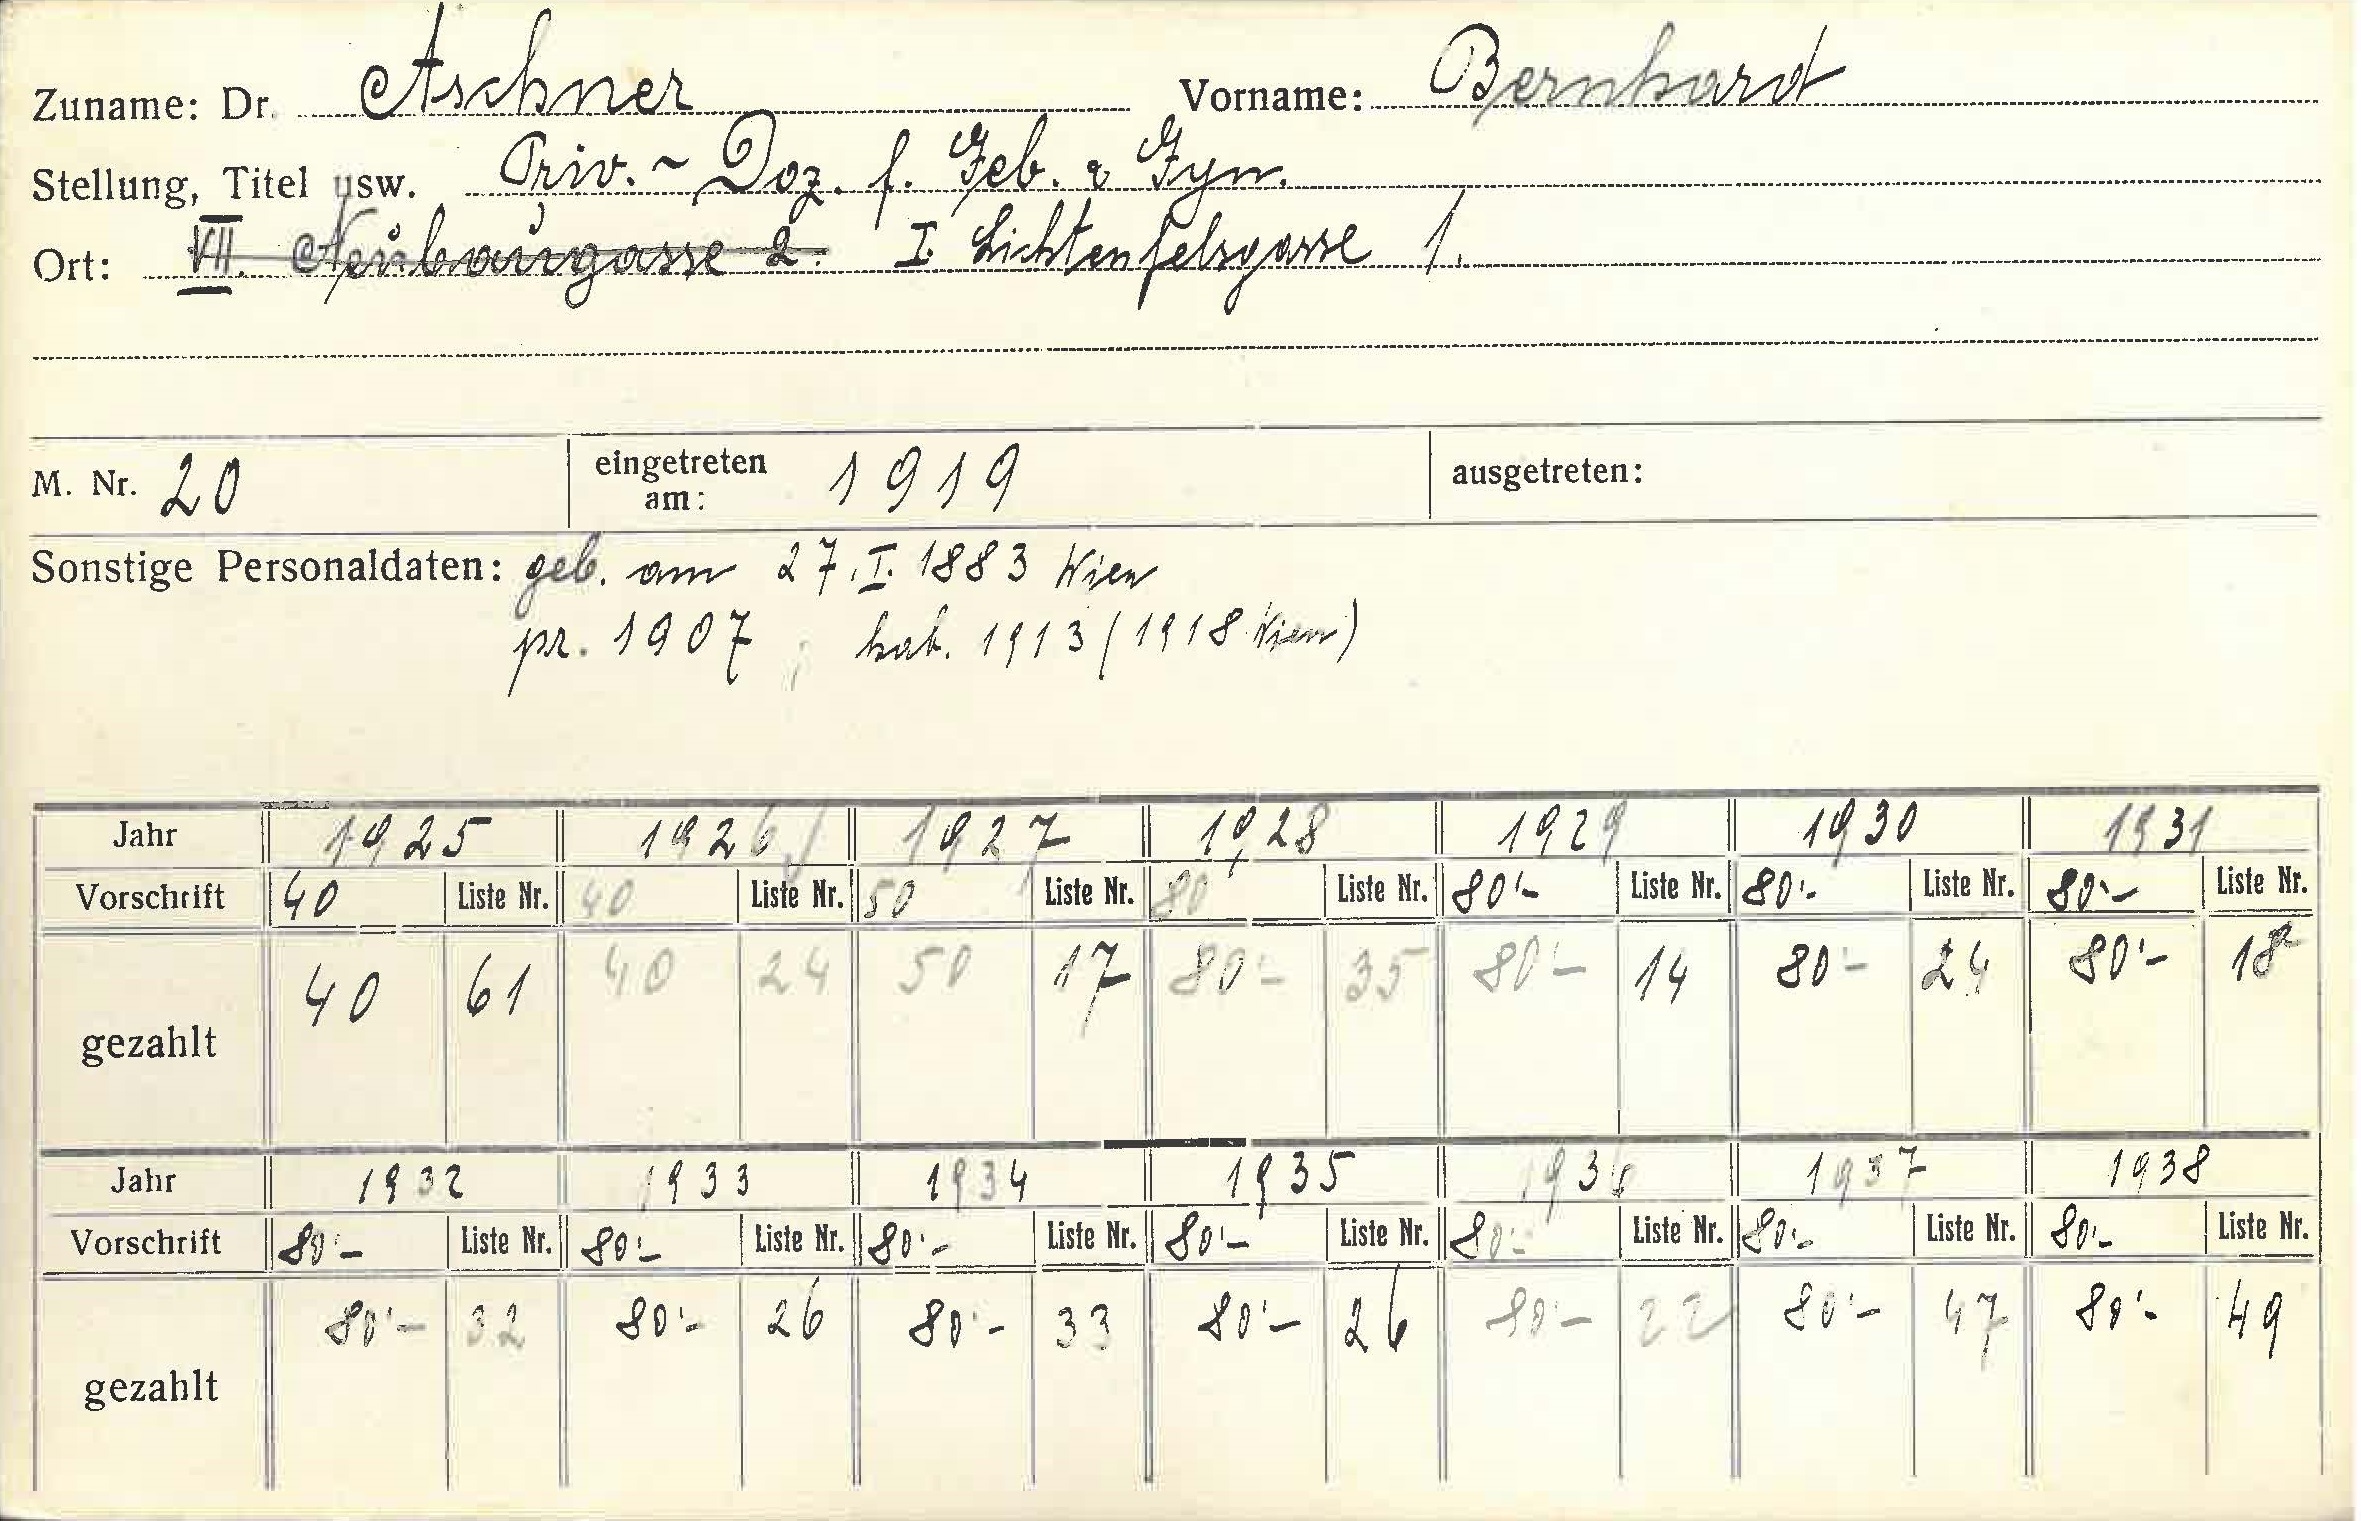 Zuname: Dr. Aschner Vorname: Bernhard
Stellung, Titel usw. Priv. - Doz. f. Geb. & Gyn.
Ort: VII. Neubaugasse 2. I. Lichtenfelsgasse 1.
M. Nr. 20 eingetreten am: 1919 ausgetreten:
Sonstige Personaldaten: geb. am 27.I.1883 Wien
pr. 1907 ; hab. 1913 (1918 Wien)
Jahr 1925 1926 1927 1928 1929 1930 1931
Vorschrift 40 Liste Nr. 40 Liste Nr. 50 Liste Nr. 80 Liste Nr. 80'- Liste Nr. 80'- Liste Nr. 80'- Liste Nr.
gezahlt 40 61 40 24 50 17 80'- 35 80'- 14 80'- 24 80'- 18
Jahr 1932 1933 1934 1935 1936 1937 1938
Vorschrift 80'- Liste Nr. 80'- Liste Nr. 80'- Liste Nr. 80'- Liste Nr. 80'- Liste Nr. 80'- Liste Nr. 80'- Liste Nr.
gezahlt 80'- 32 80'- 26 80'- 33 80'- 26 80'- 22 80'- 47 80'- 49